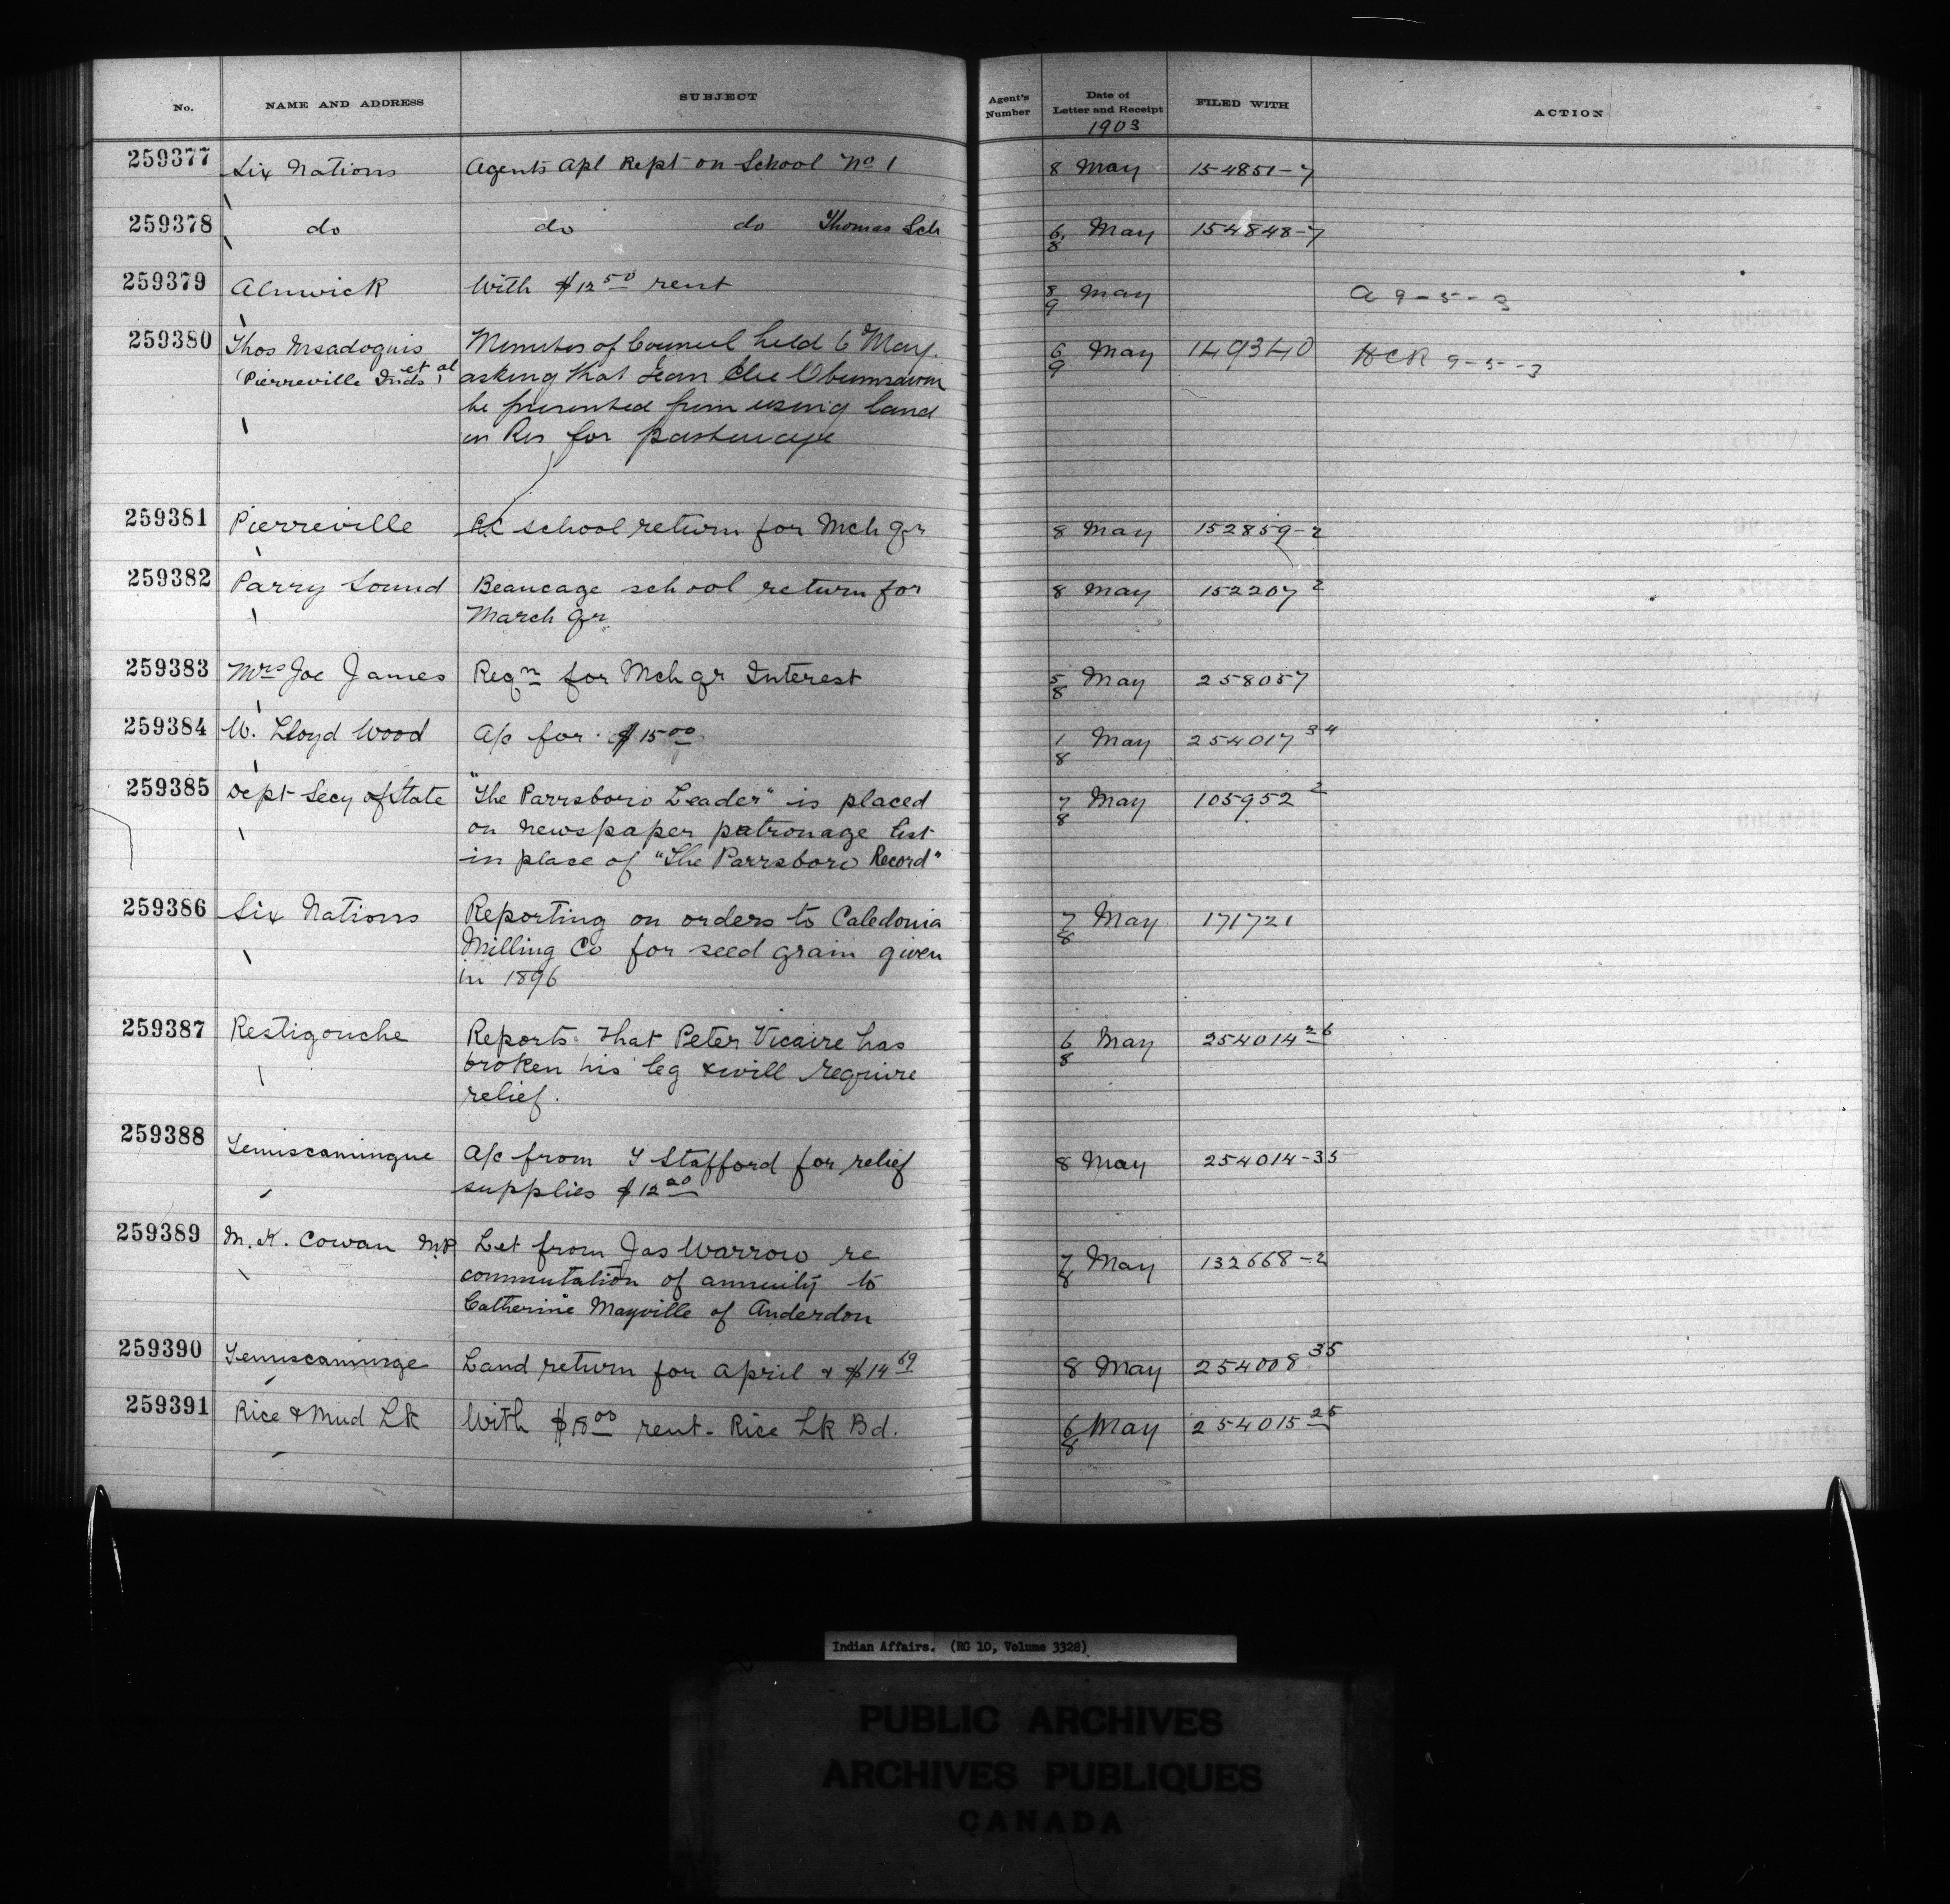 No. NAME AND ADDRESS SUBJECT Agent's Number Date of Letter and Receipt FILED WITH ACTION
1903
259377 Six Nations Agents Apl Rept on School No 1 8 May 154851-7
259378 do do do Thomas Sch 6/8 May 154848-7
259379 Alnwick With $12 50 rent 8/9 May a 9-5-3
259380 Thos Msadoquis Minutes of Council held 6 May. 6/9 May 149340 HCR 9-5-3
(Pierreville Inds et al) asking that Jean Elie
be prevented from using land
on Res for pasturage
259381 Pierreville R.C school return for Mch qr 8 May 152859-2
259382 Parry Sound Beaucage school return for 8 May 152207 2
March qr.
259383 Mrs Joe James Reqn for Mch qr Interest 5/8 May 258057
259384 W. Lloyd Wood A/c for $15 00 1/8 May 254017 34
259385 Dept Secy of State "The Parrsboro Leader" is placed 7/8 May 105952 2
on newspaper patronage list
in place of "The Parrsboro Record"
259386 Six Nations Reporting on orders to Caledonia 7/8 May 171721
Milling Co for seed grain given
in 1896
259387 Restigouche Reports that Peter Vicaire has 6/8 May 254014 26
broken his leg & will require
relief.
259388 Temiscamingue A/c from T Stafford for relief 8 May 254014-35
supplies $12 20
259389 M. K. Cowan M.P. Let from Jas Warrow re 7/8 May 132668-2
commutation of annuity to
Catherine Mayville of Anderdon
259390 Temiscamingue Land return for April & $14 69 8 May 254008 35
259391 Rice & Mud Lk With $18 00 rent - Rice Lk Bd. 6/8 May 254015 25
Indian Affairs. (RG 10, Volume 3328)
PUBLIC ARCHIVES
ARCHIVES PUBLIQUES
CANADA